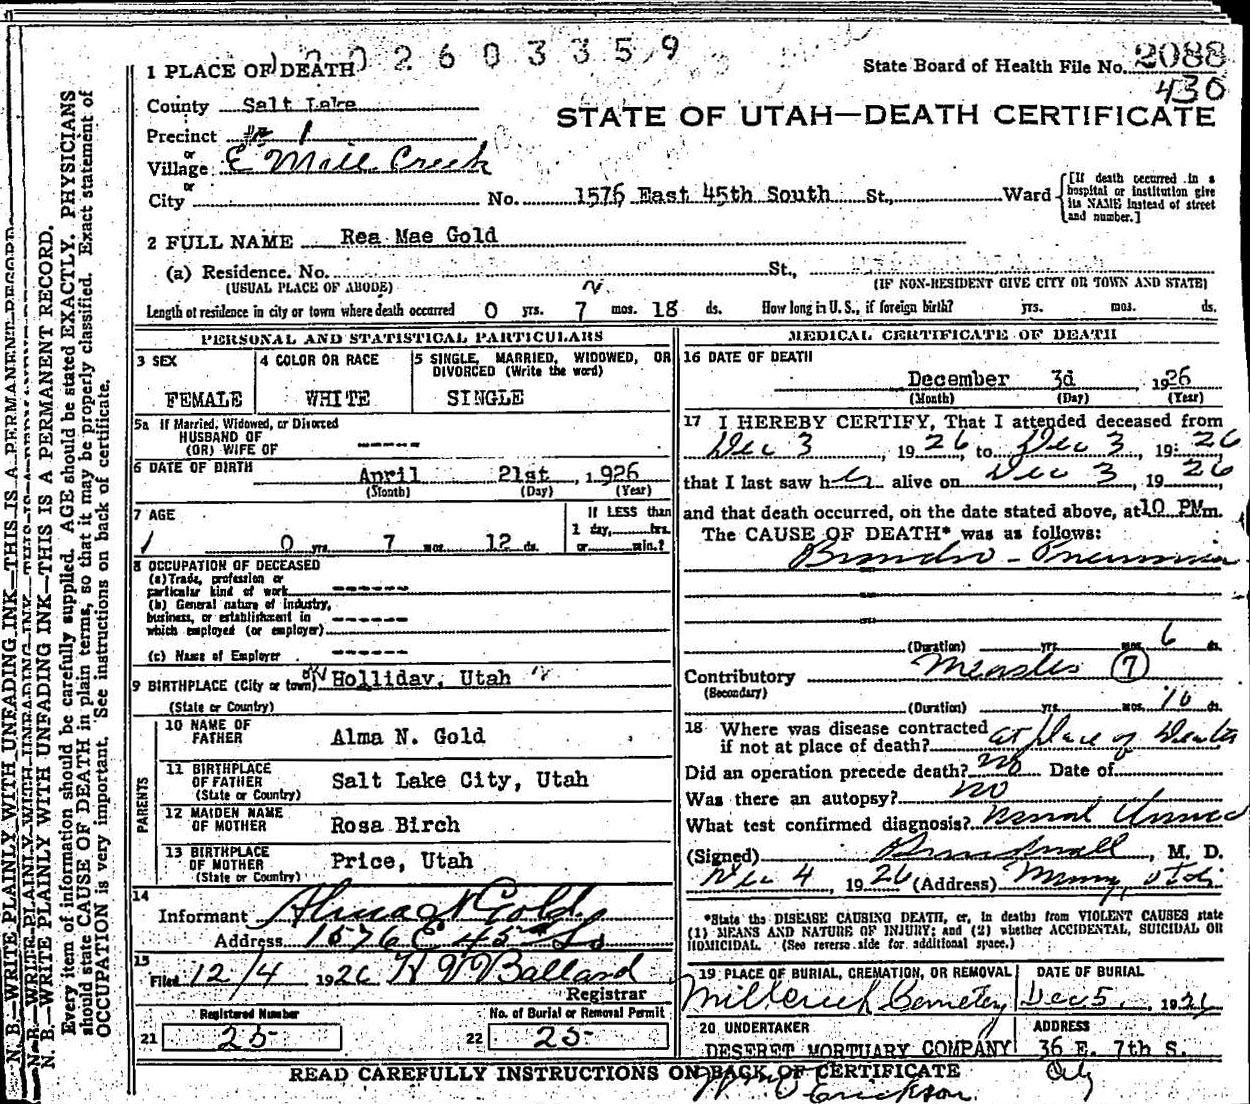 1002603359
State Board of Health File No. 2088
430
STATE OF UTAH—DEATH CERTIFICATE
1 PLACE OF DEATH
County Salt Lake
Precinct # 1
or
Village E Mill Creek
or
City No. 1576 East 45th South St., Ward [If death occurred in a hospital or institution give its NAME instead of street and number.]
2 FULL NAME Rea Mae Gold
(a) Residence. No. St.,
(USUAL PLACE OF ABODE) (IF NON-RESIDENT GIVE CITY OR TOWN AND STATE)
Length of residence in city or town where death occurred 0 yrs. 7 mos. 18 ds. How long in U. S., if foreign birth? yrs. mos. ds.
PERSONAL AND STATISTICAL PARTICULARS
3 SEX
FEMALE
4 COLOR OR RACE
WHITE
5 SINGLE, MARRIED, WIDOWED, OR
DIVORCED (Write the word)
SINGLE
5a If Married, Widowed, or Divorced
HUSBAND OF
(OR) WIFE OF -----
6 DATE OF BIRTH April 21st, 1926
(Month) (Day) (Year)
7 AGE
0 yrs. 7 mos. 12 ds.
If LESS than
1 day, hrs.
or min.?
8 OCCUPATION OF DECEASED
(a) Trade, profession or
particular kind of work ------
(b) General nature of Industry,
business, or establishment in
which employed (or employer) ------
(c) Name of Employer ------
9 BIRTHPLACE (City or town) Holliday, Utah
(State or Country)
PARENTS
10 NAME OF
FATHER Alma N. Gold
11 BIRTHPLACE
OF FATHER Salt Lake City, Utah
(State or Country)
12 MAIDEN NAME
OF MOTHER Rosa Birch
13 BIRTHPLACE
OF MOTHER Price, Utah
(State or Country)
14
Informant Alma N Gold
Address 1576 E 45th So
15
Filed 12/4 1926 H W Balland
Registrar
Registered Number
21 25
No. of Burial or Removal Permit
22 25
MEDICAL CERTIFICATE OF DEATH
16 DATE OF DEATH
December 3d, 1926
(Month) (Day) (Year)
17 I HEREBY CERTIFY, That I attended deceased from
Dec 3, 1926, to Dec 3, 1926
that I last saw her alive on Dec 3, 1926,
and that death occurred, on the date stated above, at 10 PMm.
The CAUSE OF DEATH* was as follows:
Broncho-Pneumonia
(Duration) yrs. mos. 6 ds.
Contributory Measles 7
(Secondary)
(Duration) yrs. mos. 10 ds.
18 Where was disease contracted
if not at place of death? at place of death
Did an operation precede death? No Date of
Was there an autopsy? no
What test confirmed diagnosis?
(Signed) , M. D.
Dec 4, 1926 (Address) Murray, Utah
*State the DISEASE CAUSING DEATH, or, in deaths from VIOLENT CAUSES state
(1) MEANS AND NATURE OF INJURY; and (2) whether ACCIDENTAL, SUICIDAL OR
HOMICIDAL. (See reverse side for additional space.)
19 PLACE OF BURIAL, CREMATION, OR REMOVAL
Millcreek Cemetery
DATE OF BURIAL
Dec 5, 1926
20 UNDERTAKER
DESERET MORTUARY COMPANY
ADDRESS
36 E. 7th S.
City
READ CAREFULLY INSTRUCTIONS ON BACK OF CERTIFICATE
Erickson
N. B.—WRITE PLAINLY WITH UNFADING INK—THIS IS A PERMANENT RECORD.
N. B.—WRITE PLAINLY WITH UNFADING INK—THIS IS A PERMANENT RECORD.
Every item of information should be carefully supplied. AGE should be stated EXACTLY. PHYSICIANS
should state CAUSE OF DEATH in plain terms, so that it may be properly classified. Exact statement of
OCCUPATION is very important. See instructions on back of certificate.